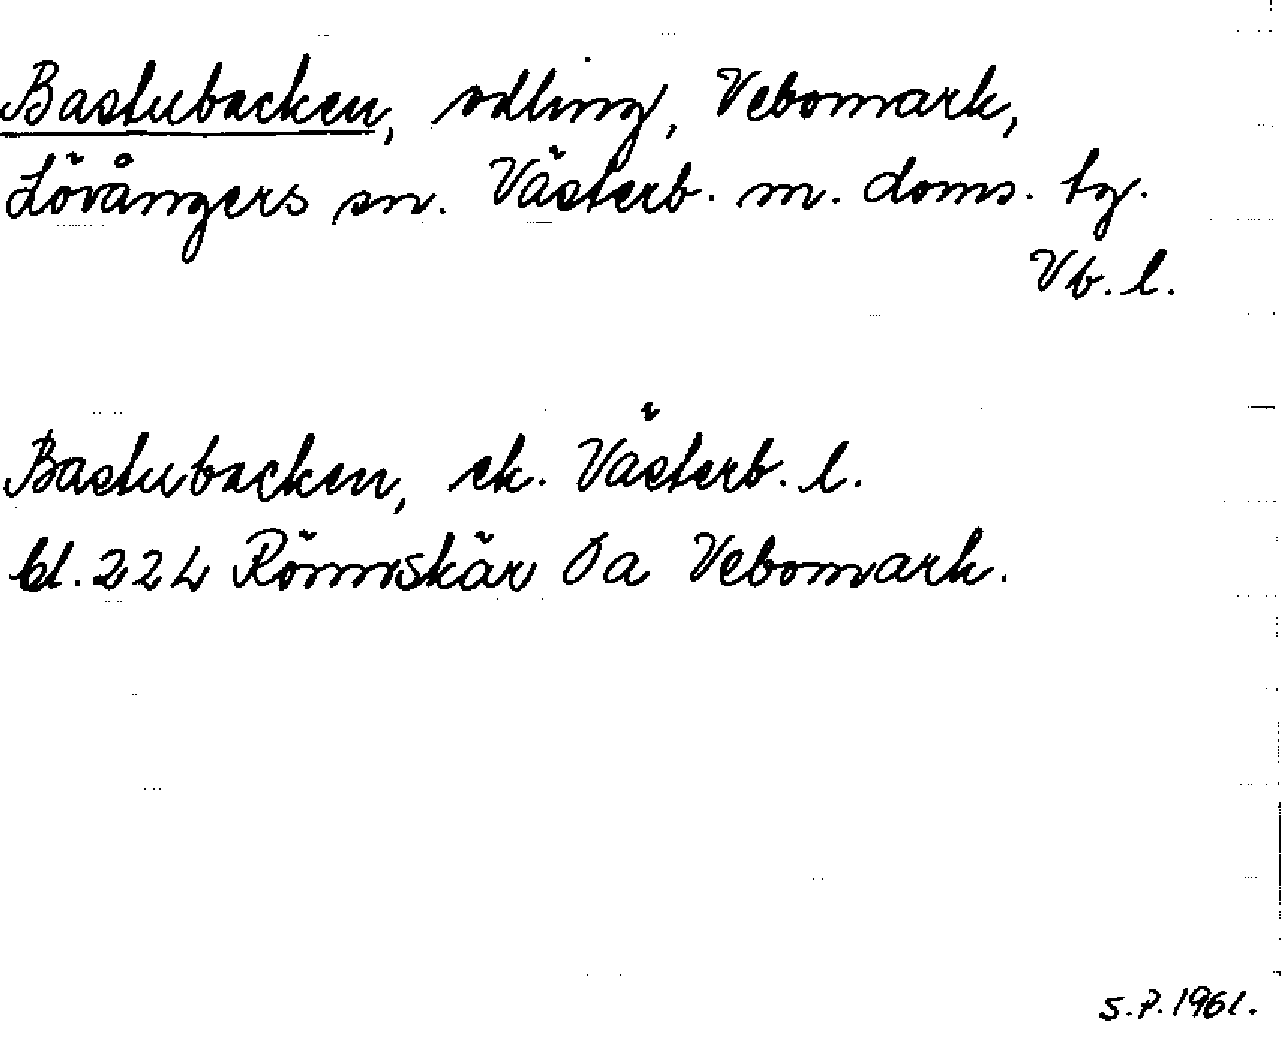 Bastubacken, odling, Vebomark,
Lövångers sn. Västerb. m. doms. tg.
Vb. l.
Bastubacken, ek. Västerb. l.
bl. 224 Rönnskär Öa Vebomark.
S.P. 1961.